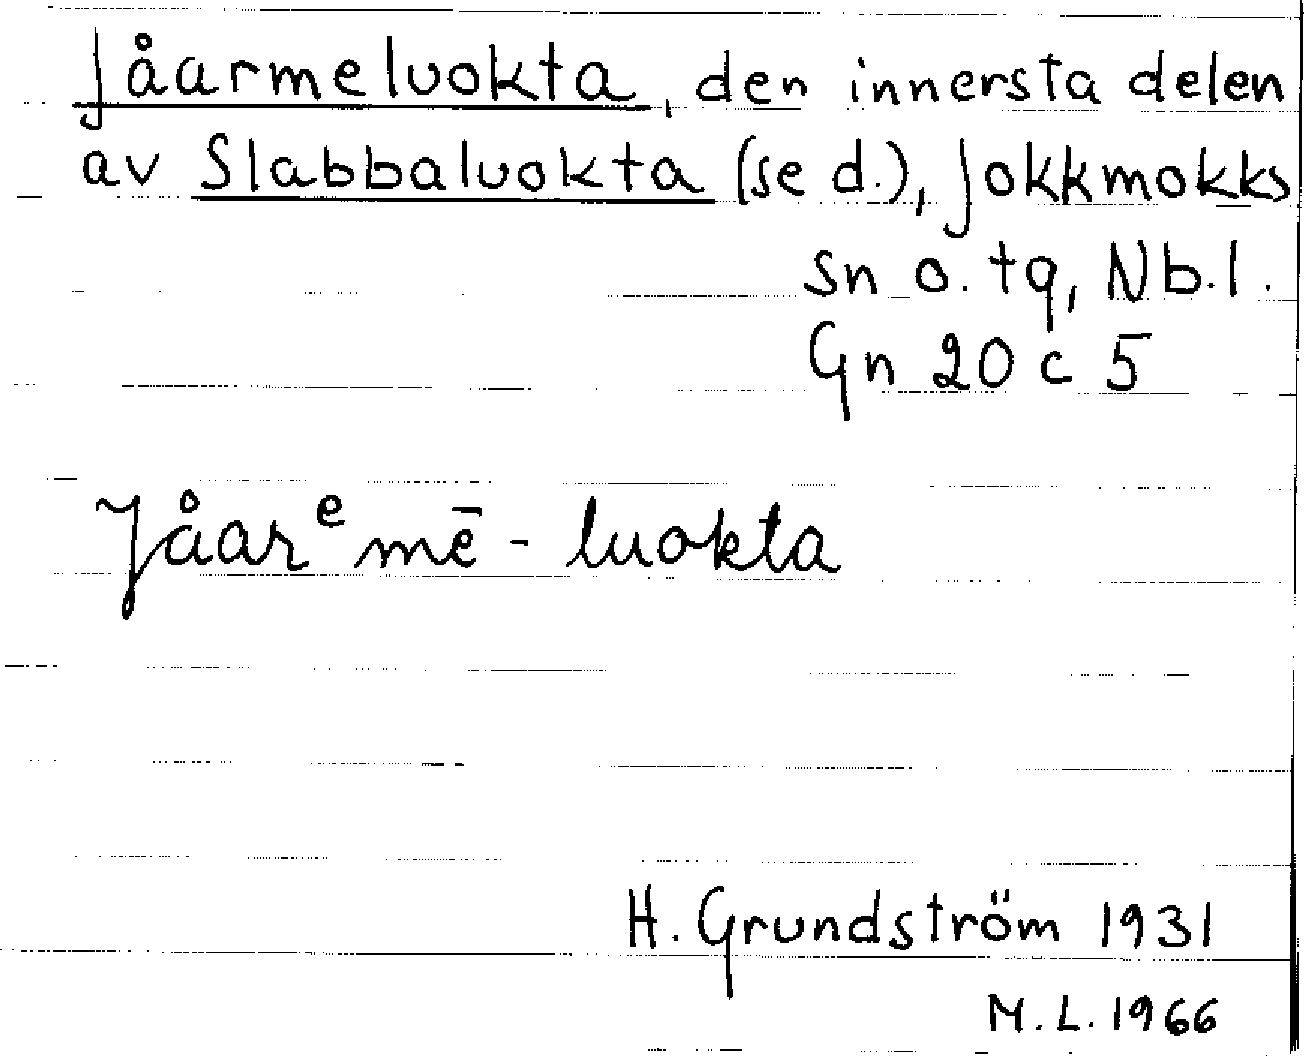 Jåarmeluokta, den innersta delen
av Slabbaluokta (se d.), Jokkmokks
sn o. tq, Nb.l.
Gn 20 c 5
Jåarᵉmē-luokta
H. Grundström 1931
M.L. 1966